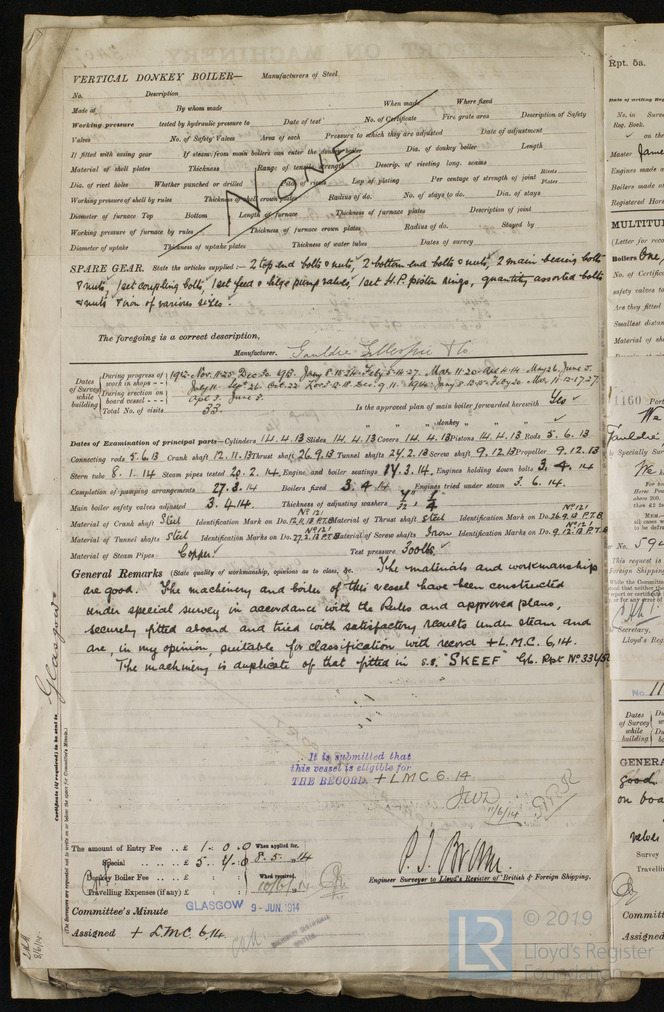 VERTICAL DONKEY BOILER— Manufacturers of Steel
No. Description
Made at By whom made When made Where fixed
Working pressure tested by hydraulic pressure to Date of test No. of Certificate Fire grate area Description of Safety
Valves No. of Safety Valves Area of each Pressure to which they are adjusted Date of adjustment
If fitted with easing gear If steam from main boilers can enter the donkey boiler Dia. of donkey boiler Length
Material of shell plates Thickness Range of tensile strength Descrip. of riveting long. seams
Dia. of rivet holes Whether punched or drilled Pitch of rivets Lap of plating Per centage of strength of joint Rivets Plates
Working pressure of shell by rules Thickness of shell crown plates Radius of do. No. of stays to do. Dia. of stays
Diameter of furnace Top Bottom Length of furnace Thickness of furnace plates Description of joint
Working pressure of furnace by rules Thickness of furnace crown plates Radius of do. Stayed by
Diameter of uptake Thickness of uptake plates Thickness of water tubes Dates of survey
NONE
SPARE GEAR. State the articles supplied:— 2 top end bolts & nuts, 2 bottom end bolts & nuts, 2 main bearing bolts
& nuts, 1 set coupling bolts, 1 set feed & bilge pump valves, 1 set H.P. piston rings, quantity assorted bolts
& nuts & iron of various sizes.
The foregoing is a correct description,
Manufacturer. Gauldie Gillespie & Co
Dates of Survey while building
During progress of work in shops - - 1912 Nov. 11. 25. Dec. 30. 1913. Jany 8. 15. 24. Feby 5. 14. 27. Mar. 11. 20. Apl. 4. 14. May 26. June 5.
July 11. Sept. 26. Oct. 22. Nov. 5. 12. 18. Dec. 9. 11. 1914. Jany 8. 13. 15. Feby 20. Mar. 11. 12. 17. 27.
During erection on board vessel - - - Apl. 3. June 3.
Total No. of visits 33.
Is the approved plan of main boiler forwarded herewith Yes
" " " donkey " " "
Dates of Examination of principal parts—Cylinders 14.4.13 Slides 14.4.13 Covers 14.4.13 Pistons 14.4.13 Rods 5.6.13
Connecting rods 5.6.13 Crank shaft 12.11.13 Thrust shaft 26.9.13 Tunnel shafts 24.2.13 Screw shaft 9.12.13 Propeller 9.12.13
Stern tube 8.1.14 Steam pipes tested 20.2.14 Engine and boiler seatings 17.3.14 Engines holding down bolts 3.4.14
Completion of pumping arrangements 27.3.14 Boilers fixed 3.4.14 Engines tried under steam 3.6.14.
Main boiler safety valves adjusted 3.4.14. Thickness of adjusting washers
Material of Crank shaft Steel Identification Mark on Do. No 121 12.11.13 P.T.B. Material of Thrust shaft Steel Identification Mark on Do. No 121 26.9.13 P.T.B.
Material of Tunnel shafts Steel Identification Marks on Do. No 121 27.2.13 P.T.B. Material of Screw shafts Iron Identification Marks on Do. No 121 9.12.13 P.T.B.
Material of Steam Pipes Copper Test pressure 400 lbs
General Remarks (State quality of workmanship, opinions as to class, &c. The materials and workmanship
are good. The machinery and boiler of this vessel have been constructed
under special survey in accordance with the Rules and approved plans,
securely fitted aboard and tried with satisfactory results under steam and
are, in my opinion, suitable for classification with record + L.M.C. 6,14.
The machinery is duplicate of that fitted in s.s. "SKEEF" Gls. Rpt No.
It is submitted that
this vessel is eligible for
THE RECORD. + LMC 6.14.
11/6/14
The amount of Entry Fee . . £ 1 . 0 . 0 When applied for.
Special . . . . . £ 5 . 4 . 0 8.5.14
Donkey Boiler Fee . . . £ : : When received.
Travelling Expenses (if any) £ : : 10/6/14
Engineer Surveyor to Lloyd's Register of British & Foreign Shipping.
Committee's Minute GLASGOW 9 - JUN. 1914
Assigned + L.M.C. 6,14.
Glasgow
Certificate (if required) to be sent to
(The Surveyors are requested not to write on or below the space for Committee's Minute.)
Rpt. 5a.
Date of writing Rep
No. in Surve
Reg. Book.
on the
Master Jame
Engines made a
Boilers made a
Registered Hors
MULTITU
(Letter for reco
Boilers One,
No. of Certific
safety valves to
Are they fitted
Smallest distan
Material of she
1160 Port
We
Gauldie,
by Specially Sur
We h
No. 594
This request is
Foreign Shipping
Secretary,
Lloyd's Reg
No. 11
Dates of Survey while building
GENERA
good
on boa
valves
Survey
Travelling
Committ
Assigned
LR © 2019
Lloyd's Register
Foundation